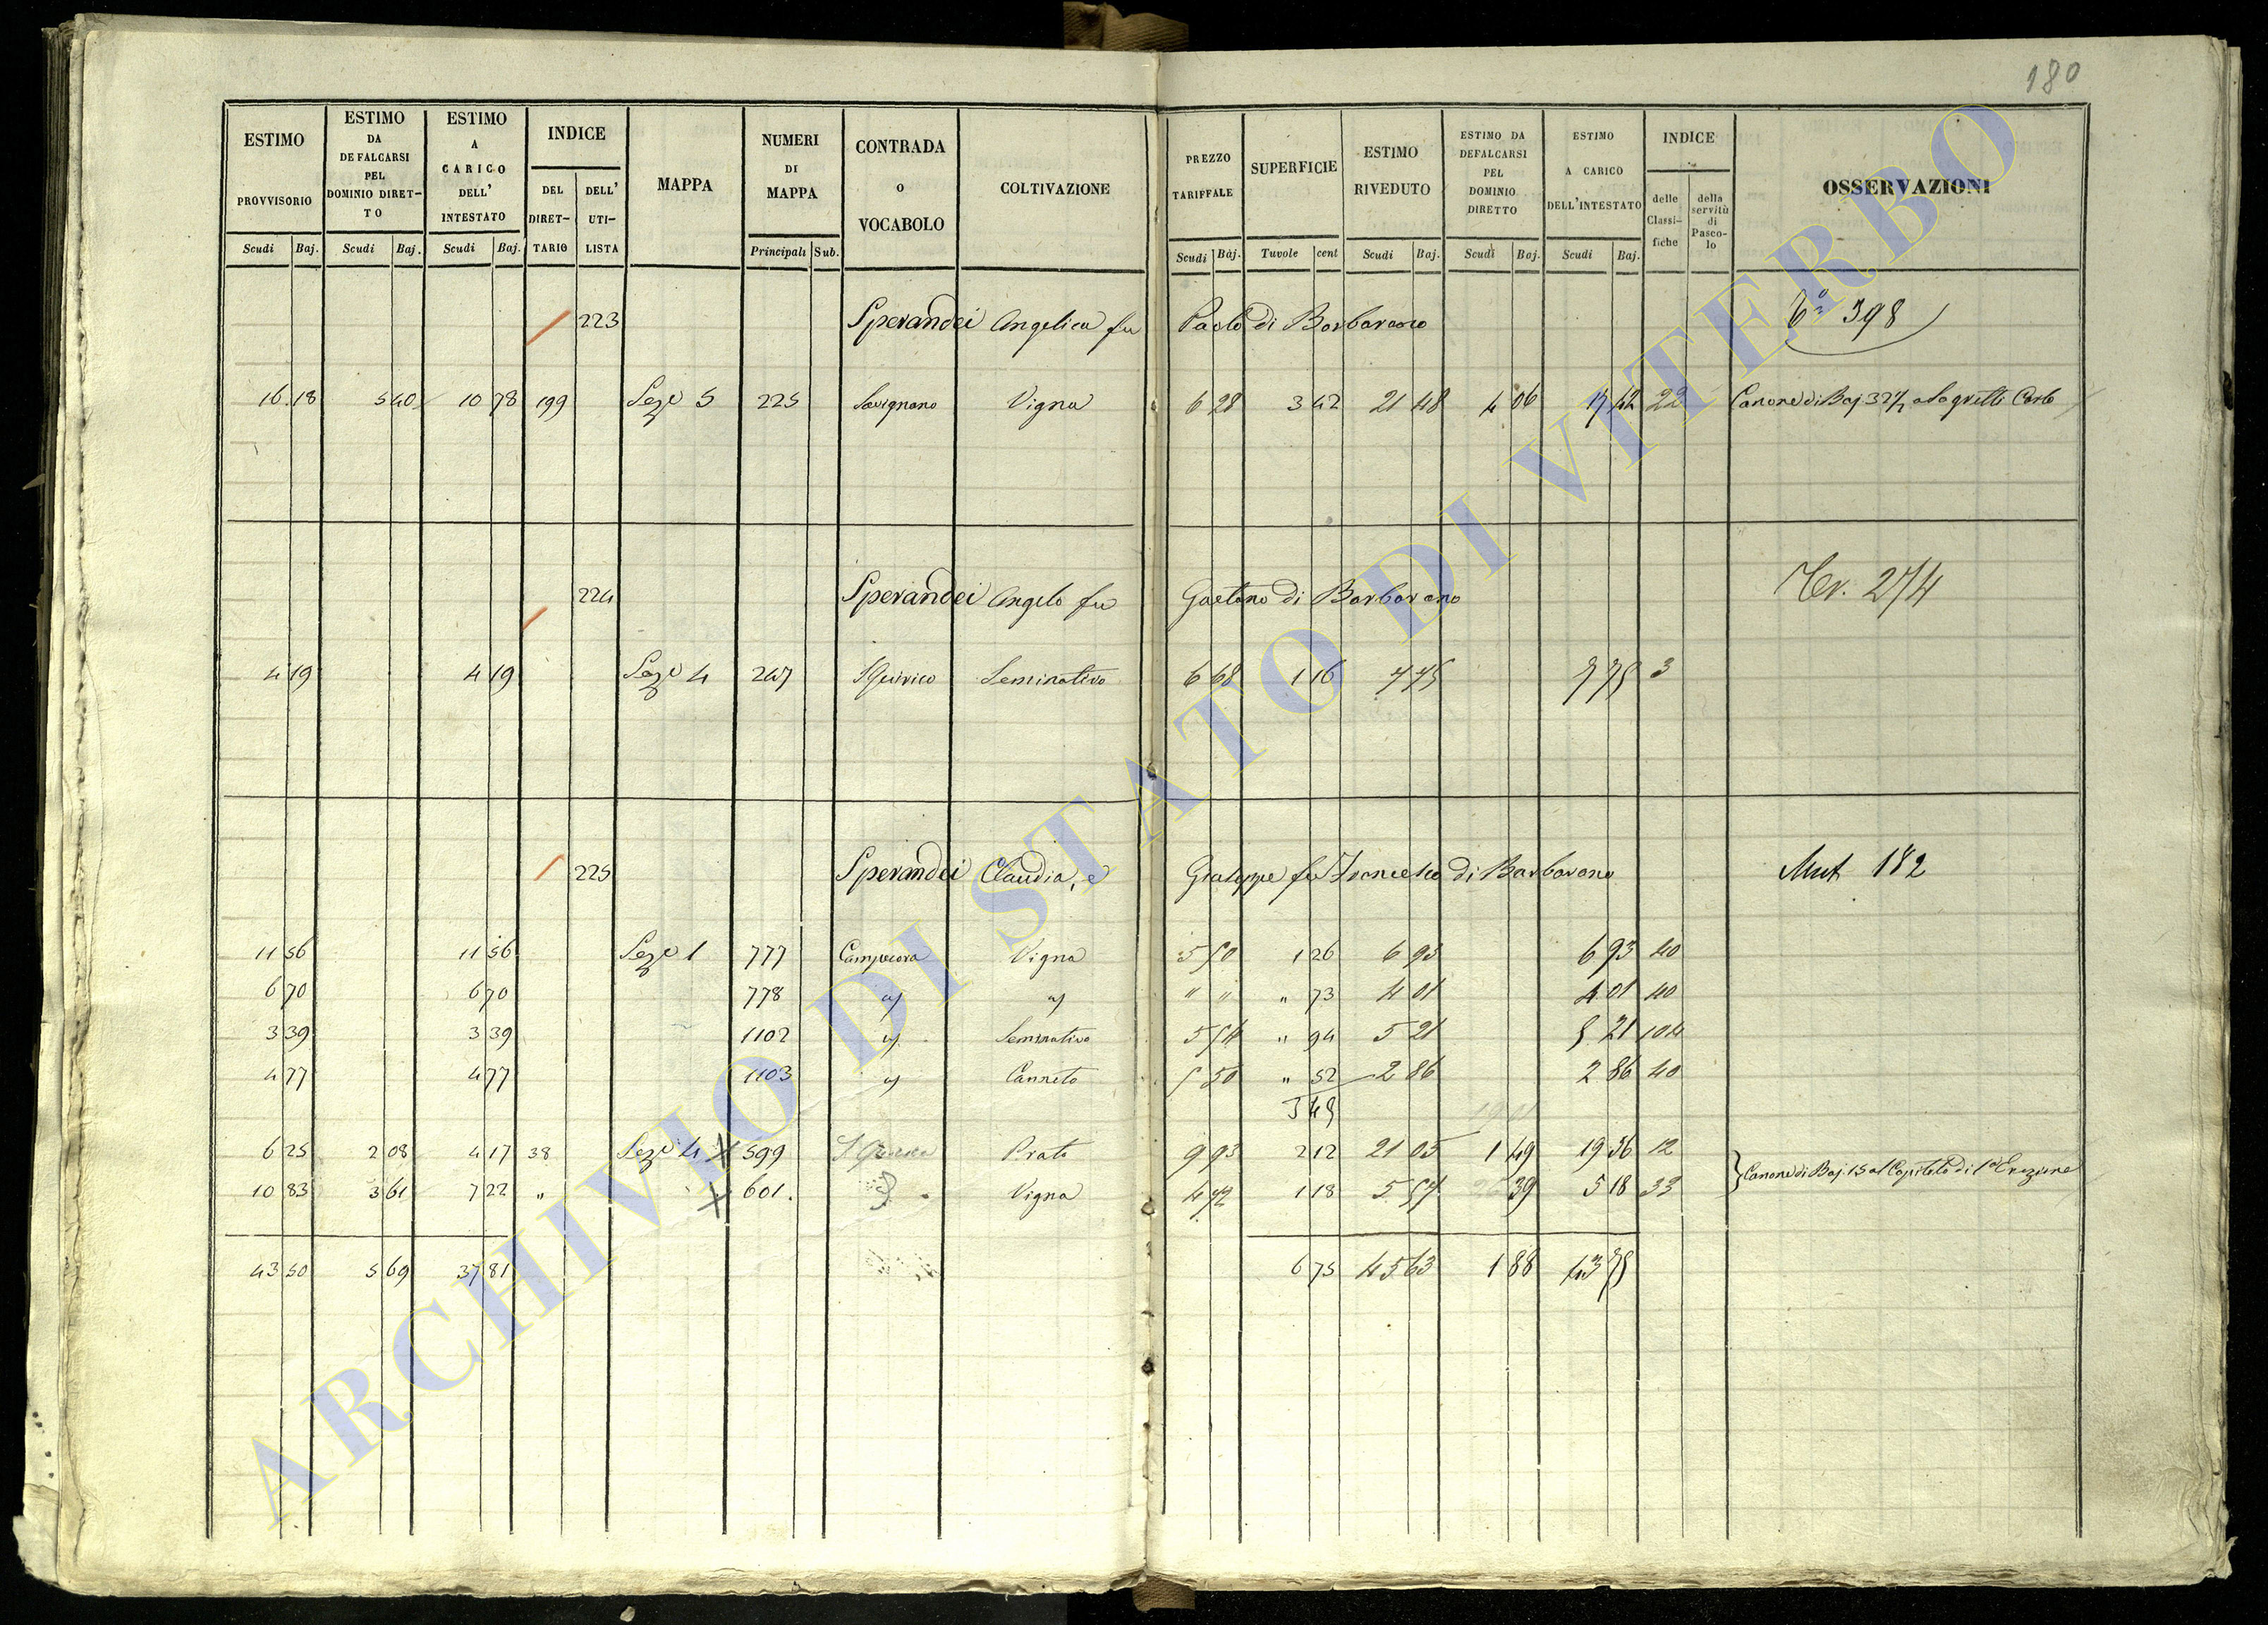 180
ESTIMO PROVVISORIO
ESTIMO DA DEFALCARSI PEL DOMINIO DIRET-TO
ESTIMO A CARICO DELL' INTESTATO
INDICE
DEL DIRET-TARIO
DELL' UTI-LISTA
MAPPA
NUMERI DI MAPPA
CONTRADA O VOCABOLO
COLTIVAZIONE
PREZZO TARIFFALE
SUPERFICIE
ESTIMO RIVEDUTO
ESTIMO DA DEFALCARSI PEL DOMINIO DIRETTO
ESTIMO A CARICO DELL'INTESTATO
INDICE
delle Classi-fiche
della servitù di Pasco-lo
OSSERVAZIONI
Scudi Baj. Scudi Baj. Scudi Baj. Principali Sub. Scudi Baj. Tavole cent Scudi Baj. Scudi Baj. Scudi Baj.
223 Sperandei Angelica fu Paolo di Barbarano 398
16 18 5 40 10 78 199 Seze 5 225 Savignano Vigna 6 28 3 42 21 48 4 06 17 42 22 Canone di Baj 32½ a Sagretti Carlo
224 Sperandei Angelo fu Gaetano di Barbarano Tr. 274
4 19 4 19 Seze 4 247 S Quirico Seminativo 6 68 1 16 7 75 7 75 3
225 Sperandei Claudia, e Giuseppe fu Francesco di Barbarano Mut 182
11 56 11 56 Seze 1 777 Vigna 5 50 1 26 6 93 6 93 40
6 70 6 70 778 " " " 73 4 01 4 01 40
3 39 3 39 1102 Seminativo 5 54 " 94 5 21 5 21 104
4 77 4 77 1103 Canneto 5 50 " 52 2 86 2 86 40
3 45
6 25 2 08 4 17 38 Seze 4 599 S Quirico Prato 9 93 2 12 21 05 1 49 19 56 12
10 83 3 61 7 22 " 601 Vigna 4 72 1 18 5 57 39 5 18 33
Canone di Baj 15 al Capitolo di 1a Erezione
43 50 5 69 37 81 6 75 45 63 1 88 43 75
ARCHIVIO DI STATO DI VITERBO